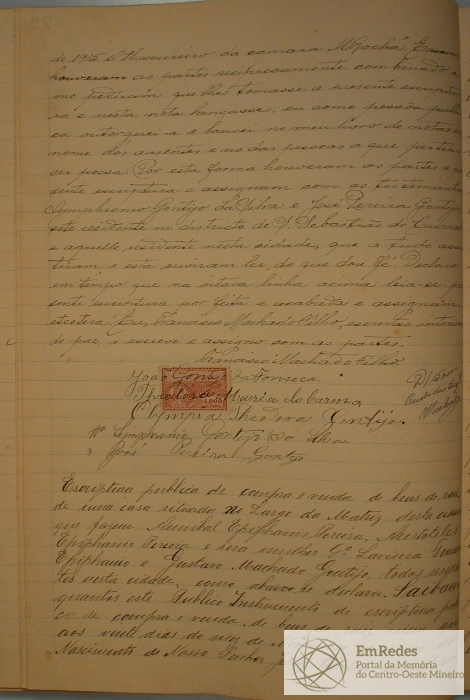 de 1915 O Thesoureiro da camara M. Rocha. E assim
houveram as partes reciprocamente combinado
me pediram que lhes tomasse a presente escriptu
ra e nesta nota lançasse; eu como pessôa publi
ca outorguei a e lancei no meu livro de notas em
nome dos ausentes e mo das pessoas a que perten
cer possa. Por esta forma houveram as partes a
dente escriptura e assignam com as testemunhas
Symphronio Gontijo da Silva e José Pereira Gontijo
este residente no districto de S. Sebastião do
e aquelle residente nesta cidade, que a tudo assis
tiram e esta ouviram ler, do que dou fé. Declaro
em tempo que na oitava linha acima leia-se: pre
sente escriptura por feita e acabada e assignam
etcetera. Eu, Francisco Machado Filho, escrivão interino
de paz, a escrevi e assigno com as partes.
Francisco Machado Filho
João Gontijo da Fonseca.
Theodora Maria do Carmo
Olympia Theodora Gontijo.
Symphronio Gontijo da Silva
José Pereira Gontijo
Escriptura publica de compra e venda de bens de raiz
de uma casa situada no Largo da Matriz desta cidade
que fazem Annibal Epiphanio Pereira, Aristoteles
Epiphanio Pereira e sua mulher
Epiphanio e Gustavo Machado Gontijo, todos residen
tes nesta cidade, como abaixo se declara. Saibam
quantos este Publico Instrumento de escriptura publi
ca de compra e venda de bens de raiz virem
aos vinte dias do mez de
Nascimento de Nosso Senhor
EmRedes
Portal da Memória
do Centro-Oeste Mineiro